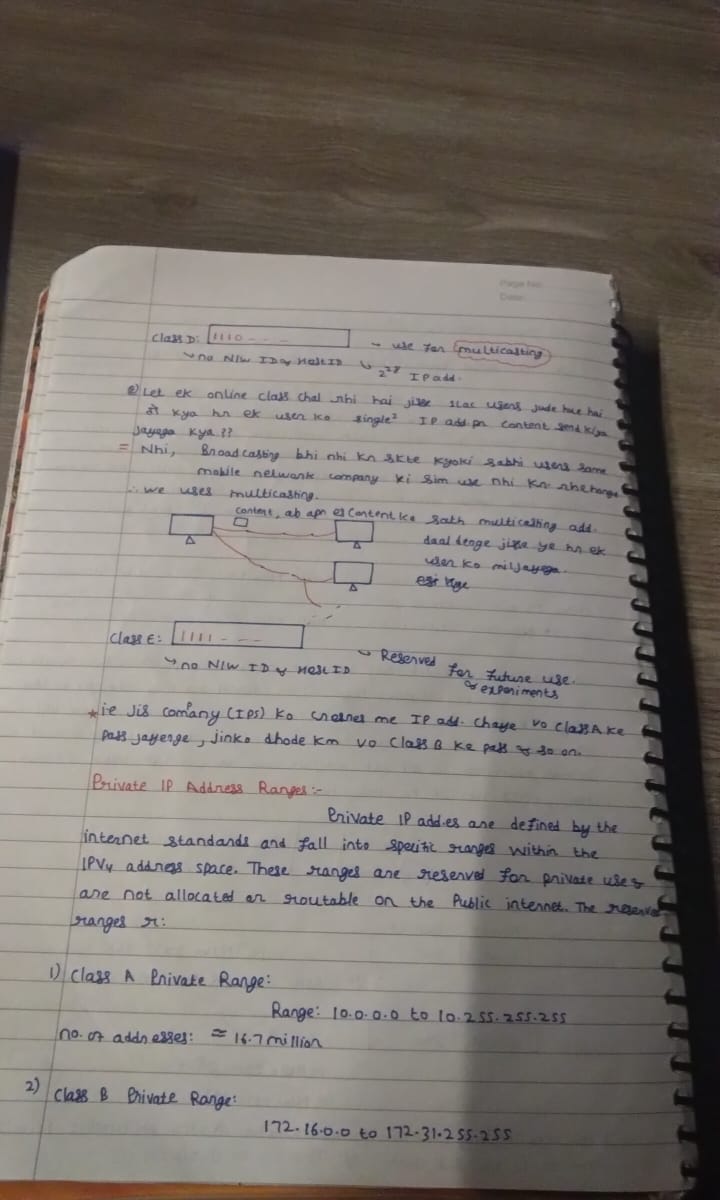 Page No:
Date:
Class D: 1110 - - - → use for multicasting
↳ no N/W ID & Host ID ↳ 2²⁸ IP add.
Let ek online class chal rhi hai jisse 1Lac users jude hue hai
to kya hr ek user ko single² IP add pr content send kiya
jayega kya ??
= Nhi, Broadcasting bhi nhi kr skte kyoki sabhi users same
mobile network company ki sim use nhi kr rhe honge
∴ we uses multicasting.
content, ab apn es content ke sath multicasting add.
daal denge jisse ye hr ek
user ko mil jayega.
Class E: 1111 - - -
↳ no N/W ID & Host ID ↳ Reserved for future use.
& experiments
* ie Jis company (IPS) ko chahiye me IP add. chaye vo Class A ke
pass jayenge, jinko dhode km vo Class B ke pass & so on.
Private IP Address Ranges :-
Private IP add.es are defined by the
internet standards and fall into specific ranges within the
IPV4 address space. These ranges are reserved for private use &
are not allocated or routable on the Public internet. The reserved
ranges r:
1) Class A Private Range:
Range: 10.0.0.0 to 10.255.255.255
no. of addresses: ≈ 16.7 million
2) Class B Private Range:
172.16.0.0 to 172.31.255.255